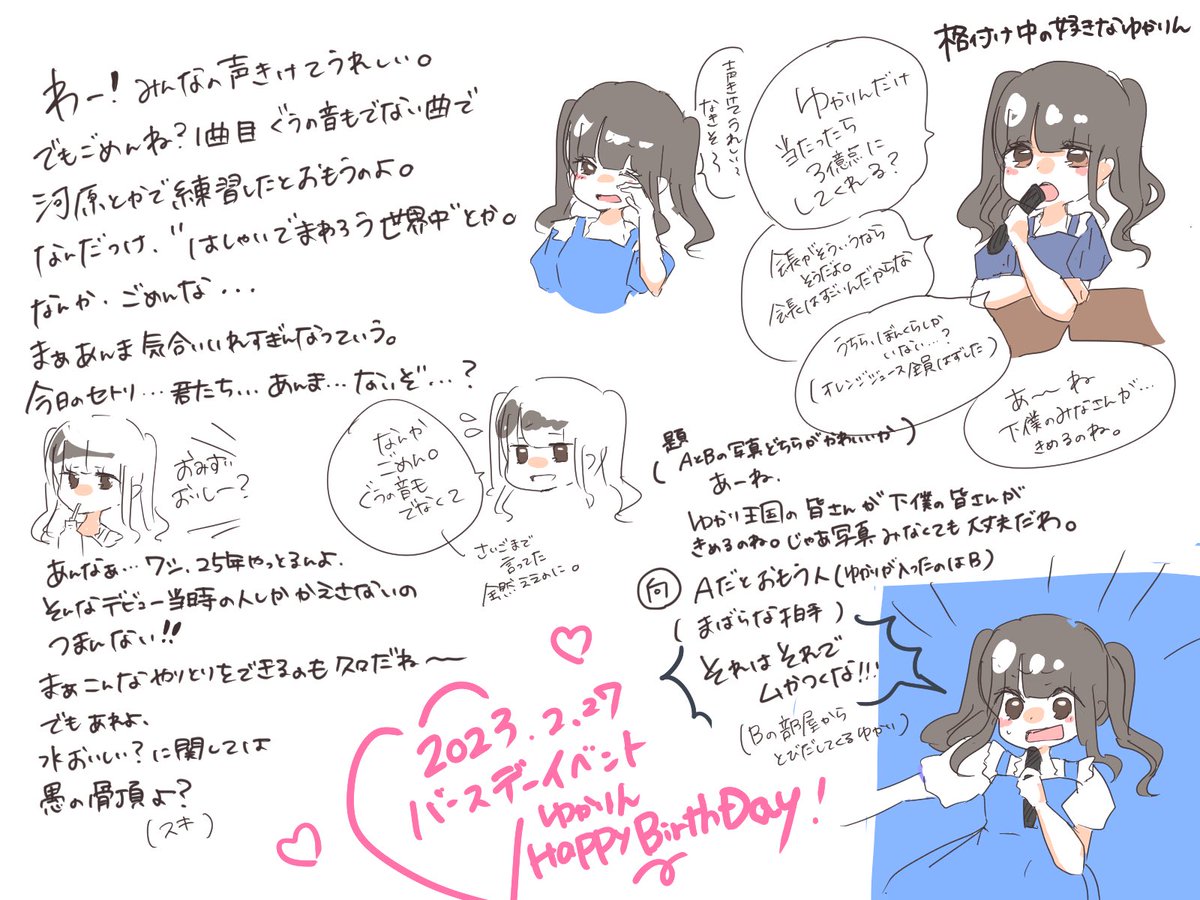 わー！みんなの声きけてうれしい。
でもごめんね？1曲目 ぐうの音もでない曲で
河原とかで練習したとおもうのよ。
なんだっけ、"はしゃいでまわろう世界中"とか。
なんか、ごめんな...
まぁあんま気合いいれすぎんなっていう。
今日のセトリ...君たち... あんま...ないぞ...？
おみずぃ
おいしー？
なんか
ごめん。
ぐうの音も
でなくて
さいごまで
言ってた
全然ええのに。
あんなぁ... ワシ、25年やっとるんよ。
そんなデビュー当時の人しかかえさないの
つまんない!!
まぁこんなやりとりをできるのも久々だね〜
でもあれよ、
水おいしい？に関しては
愚の骨頂よ？
(スキ)
声きけてうれしい、
なきそ〜
格付け中の好きなゆかりん
ゆかりんだけ
当たったら
3億点に
してくれる？
会長がそういうなら
そうだよ。
会長はすごいんだからな
うちら、ぼんくらしか
いない...？
(オレンジジュース全員はずした)
あ〜ね
下僕のみなさんが...
きめるのね。
題
(AとBの写真どちらがかわいいか)
あーね、
ゆかり王国の皆さんが下僕の皆さんが
きめるのね。じゃあ写真みなくても大丈夫だわ。
向 Aだとおもう人(ゆかりが入ったのはB)
(まばらな拍手)
それはそれで
ムかつくな!!!
(Bの部屋から
とびだしてくるゆかり)
2023.2.27
バースデーイベント
ゆかりん
Happy BirthDay!